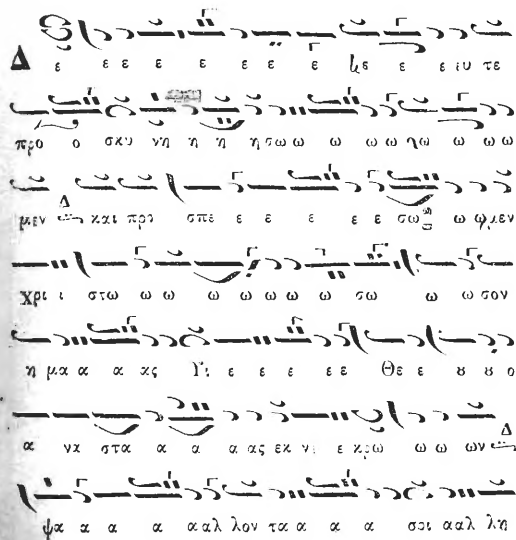 Δ ε ε ε ε ε ε ε ε ε ε ευ τε
προ ο σκυ νη η η η σω ω ω ω ω ω ω ω
μεν Δ και προ σπε ε ε ε ε ε σω ω ωμεν
Χρι ι στω ω ω ω ω ω ω ω σω ω ω σον
η μα α α ας Υι ε ε ε ε ε Θε ε ου ου ο
α να στα α α α ας εκ νε ε κρω ω ω ων Δ
ψα α α α α αλ λον τα α α α σοι α αλ λη